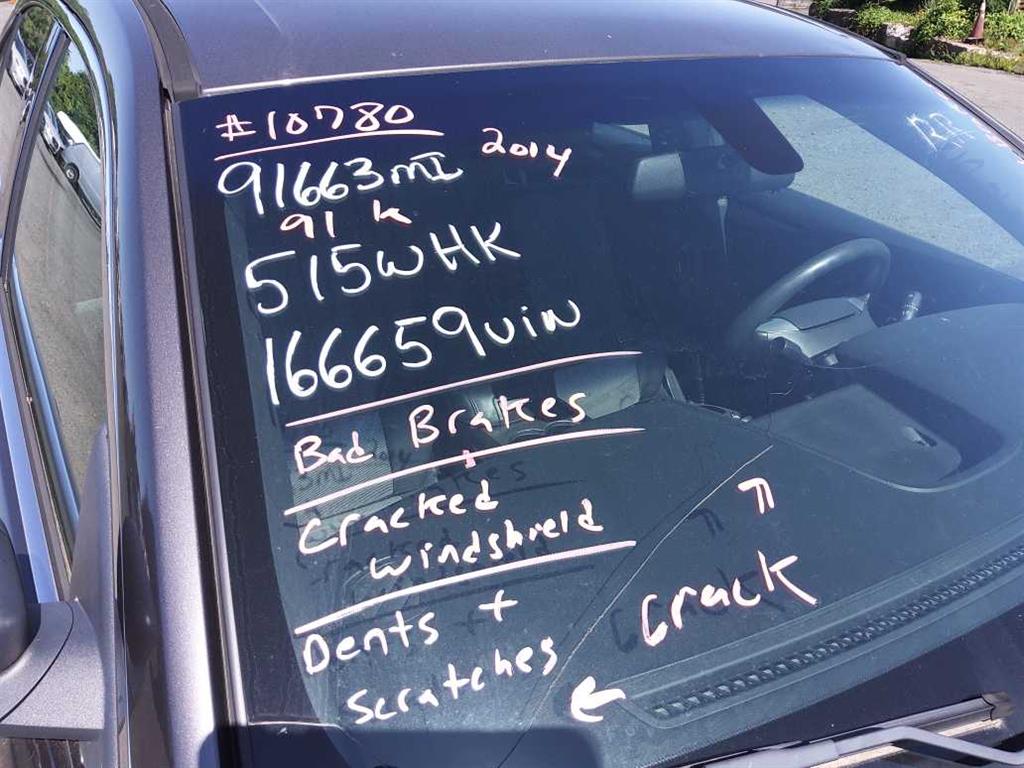 #10780
91663mI 2014
91 k
515WHK
166659vin
Bad Brakes
Cracked
windshield
Dents +
Scratches
Crack